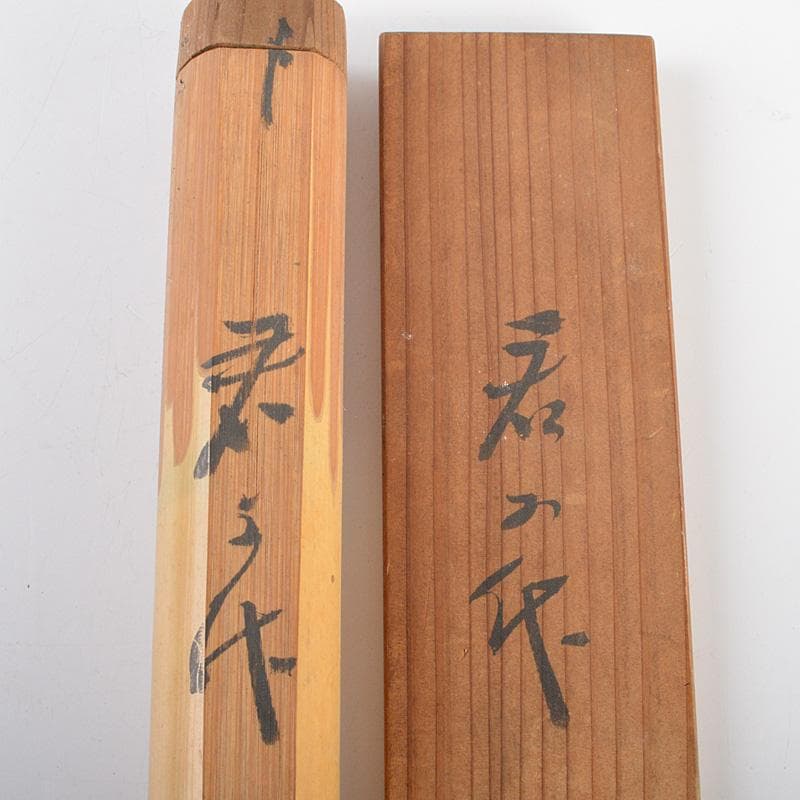 君か代
君か代